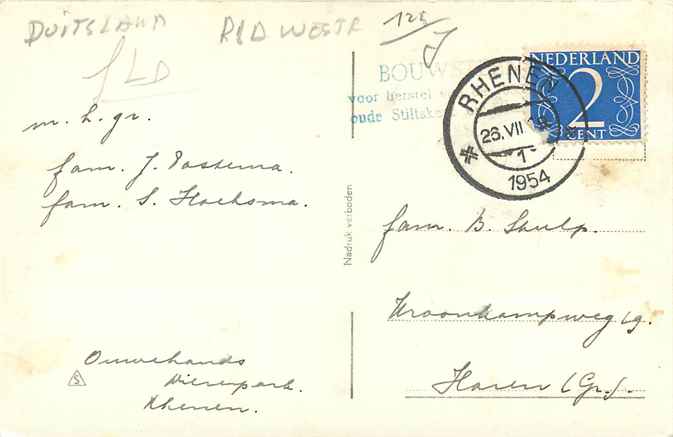 DUITSLAND RLD WESTF 125
m. h. gr.
fam. J. Postema.
fam. S. Hoeksma.
Ouwehands
Dierenpark.
Rhenen.
S
Nadruk verboden
BOUW
voor herstel
oude Stiftske
NEDERLAND
2
CENT
RHENEN
26.VII
1954
fam. B. Stulp.
Kroonkampweg 19.
Haren (Gr.).